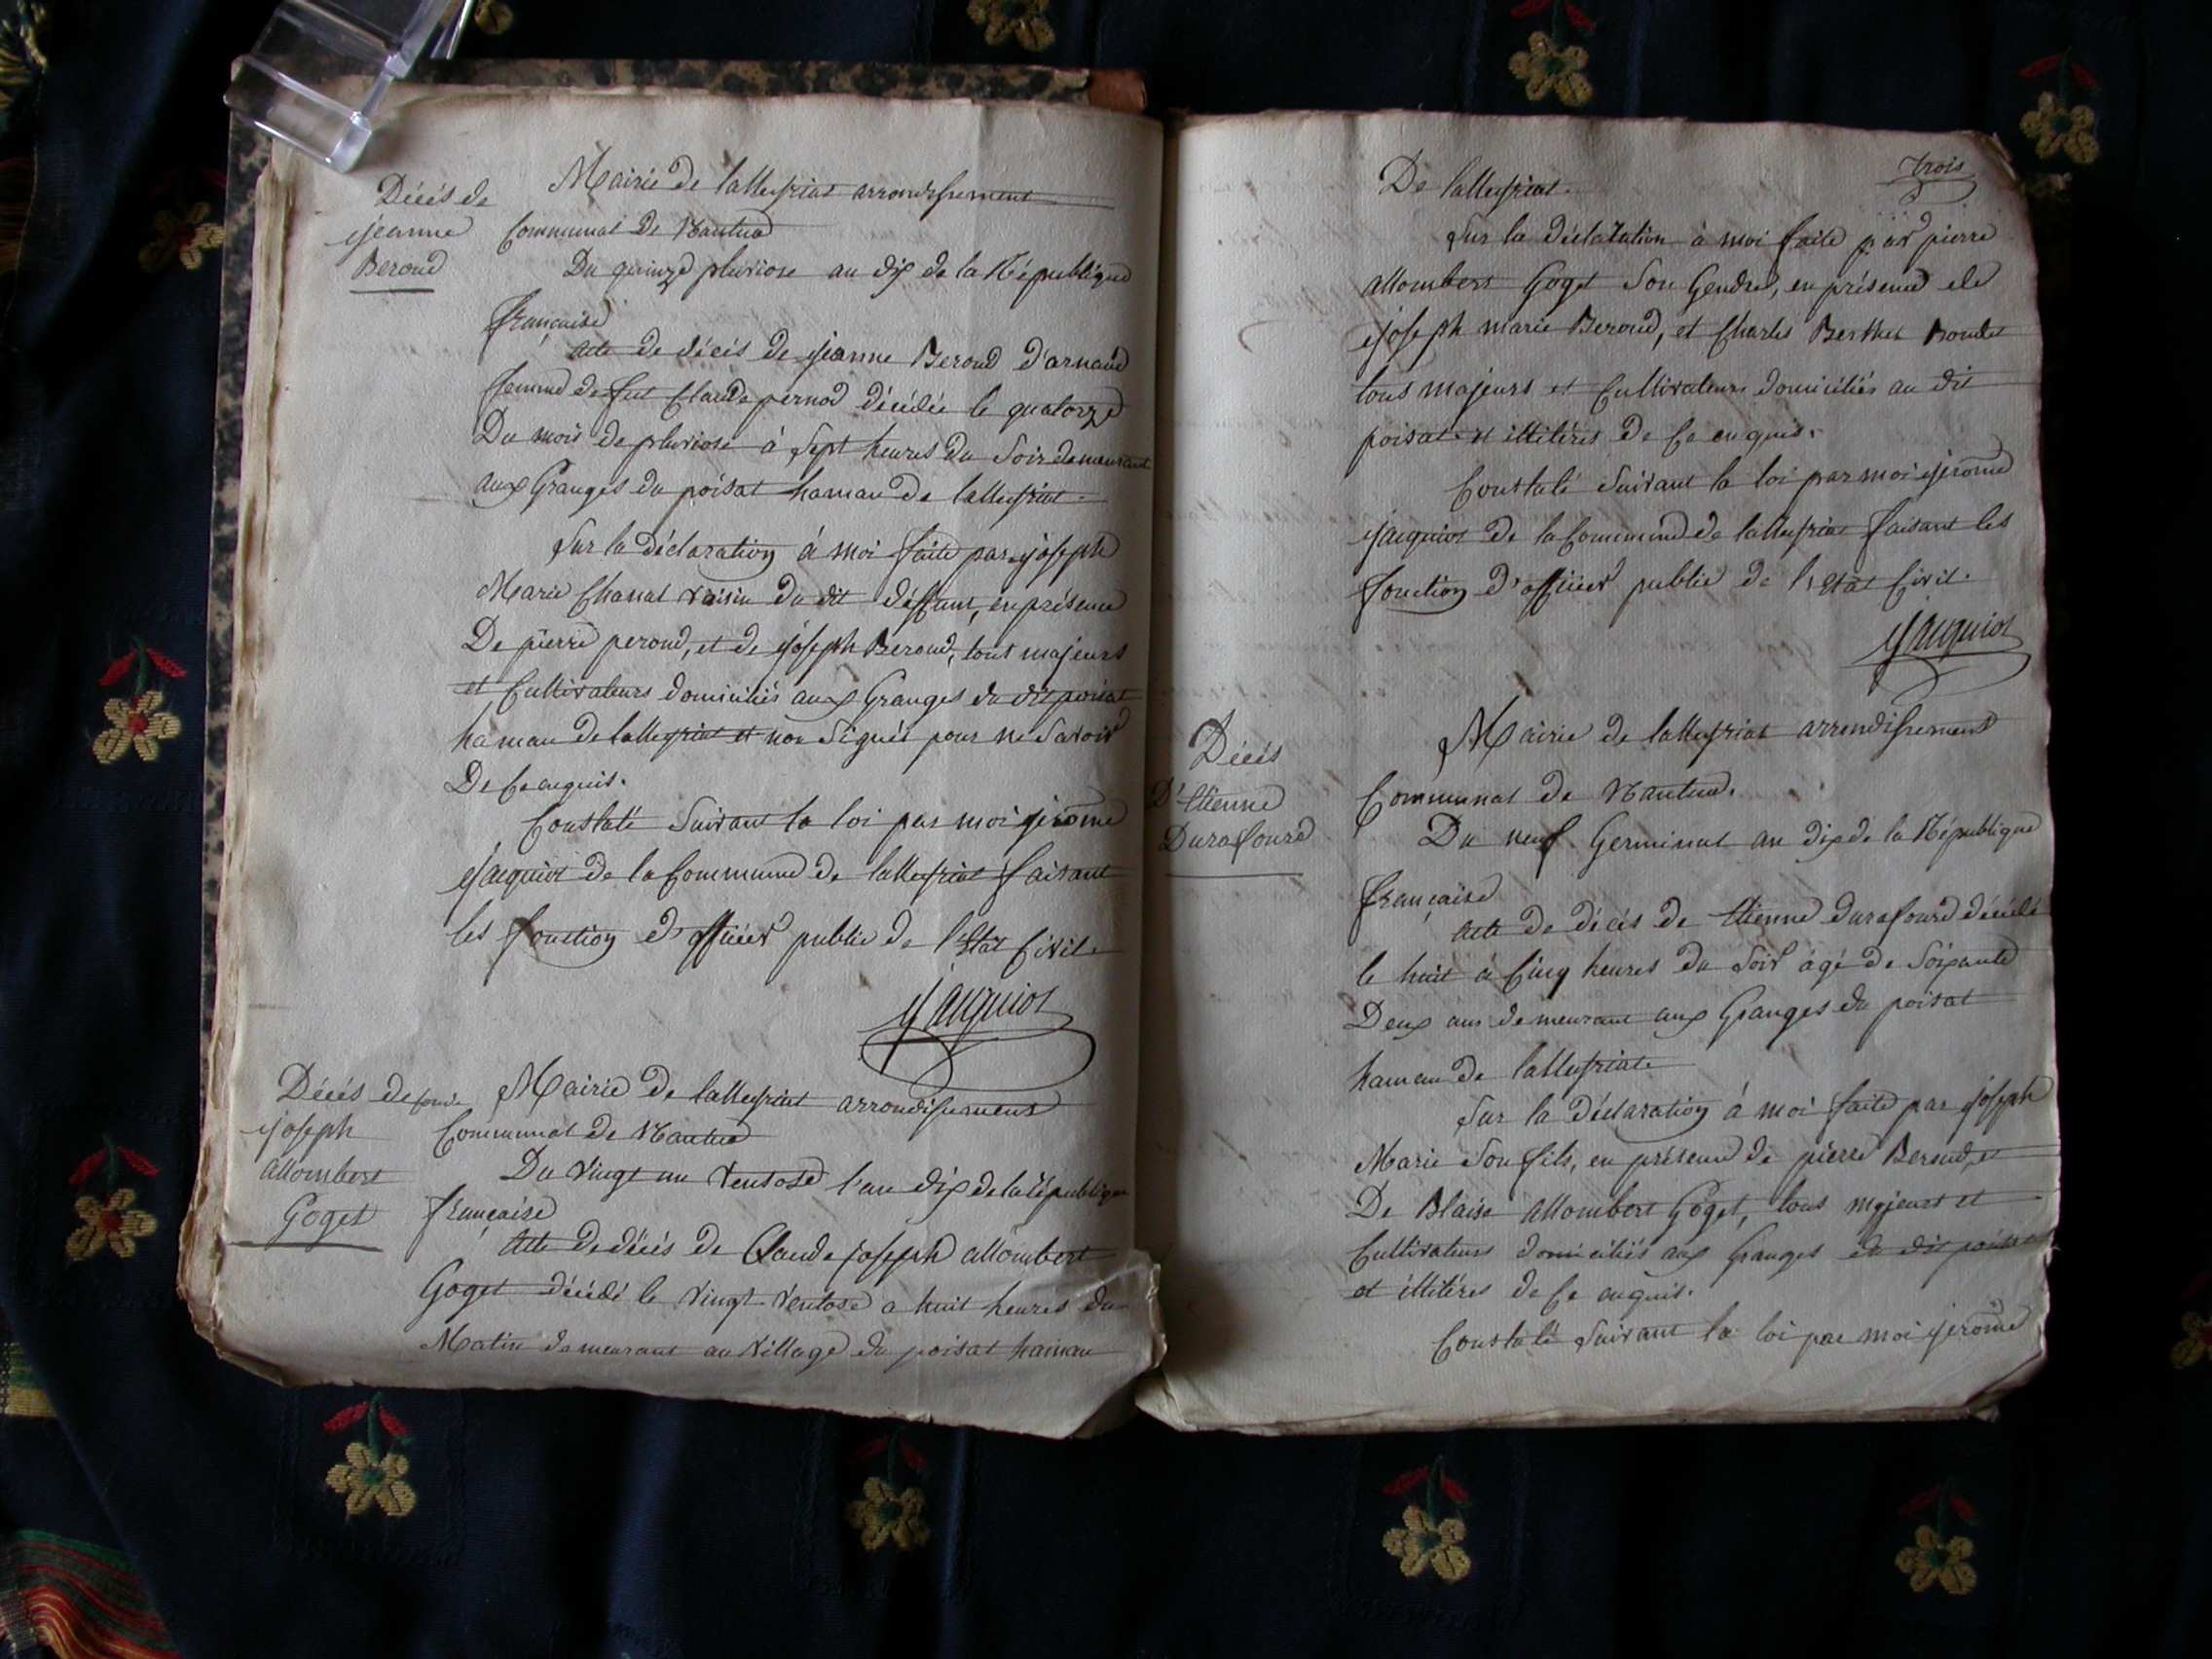 Décés de
jeanne
Beroud
Mairie de lalleyriat arrondissement
Communal de Nantua
Du quinze pluviose an dix de la République
française
Acte de décés de jeanne Beroud d'arnaud
femme de feu Claude pernod décédée le quatorze
Du mois de pluviose à Sept heures du Soir demeurant
aux Granges du poisat hamau de lalleyriat.
Sur la déclaration à moi faite par joseph
Marie Chanal voisin du dit déffunt, en présence
De pierre perond, et de joseph Beroud, tous majeurs
et Cultivateurs domiciliés aux Granges du dit poisat
hamau de lalleyriat et non Signés pour ne Savoir
De Ce enquis.
Constaté Suivant la loi par moi jérome
jacquiot de la Commune de lalleyriat faisant
les fonction d'officier public de l'Etat Civil.
jacquiot
Décés de
joseph
allombert
Goget
Mairie de lalleyriat arrondissement
Communal de Nantua
Du vingt un ventose l'an dix de la république
française
Acte de décés de Claude joseph allombert
Goget décédé le vingt ventose a huit heures du
Matin demeurant au village du poisat hamau
trois
De lalleyriat.
Sur la déclaration à moi faite par pierre
allombert Goget Son Gendre, en présence de
joseph marie Beroud, et Charles Berthet Bondet
tous majeurs et Cultivateurs domiciliés au dit
poisat et illitérés de Ce enquis.
Constaté Suivant la loi par moi jérome
jacquiot de la Commune de lalleyriat faisant les
fonction d'officier public de l'etat Civil.
jacquiot
Décés
D'Etienne
Durafourd
Mairie de lalleyriat arrondissement
Communal de Nantua.
Du neuf Germinal an dix de la République
française
Acte de décés de Etienne durafourd décédé
le huit à Cinq heures du Soir âgé de Soixante
Deux ans demeurant aux Granges du poisat
hamau de lalleyriat
Sur la déclaration à moi faite par joseph
Marie Son fils, en présence de pierre Beroud, et
De Blaise allombert Goget, tous majeurs et
Cultivateurs domiciliés aux Granges du dit poisat
et illitérés de Ce enquis.
Constaté Suivant la loi par moi jérome